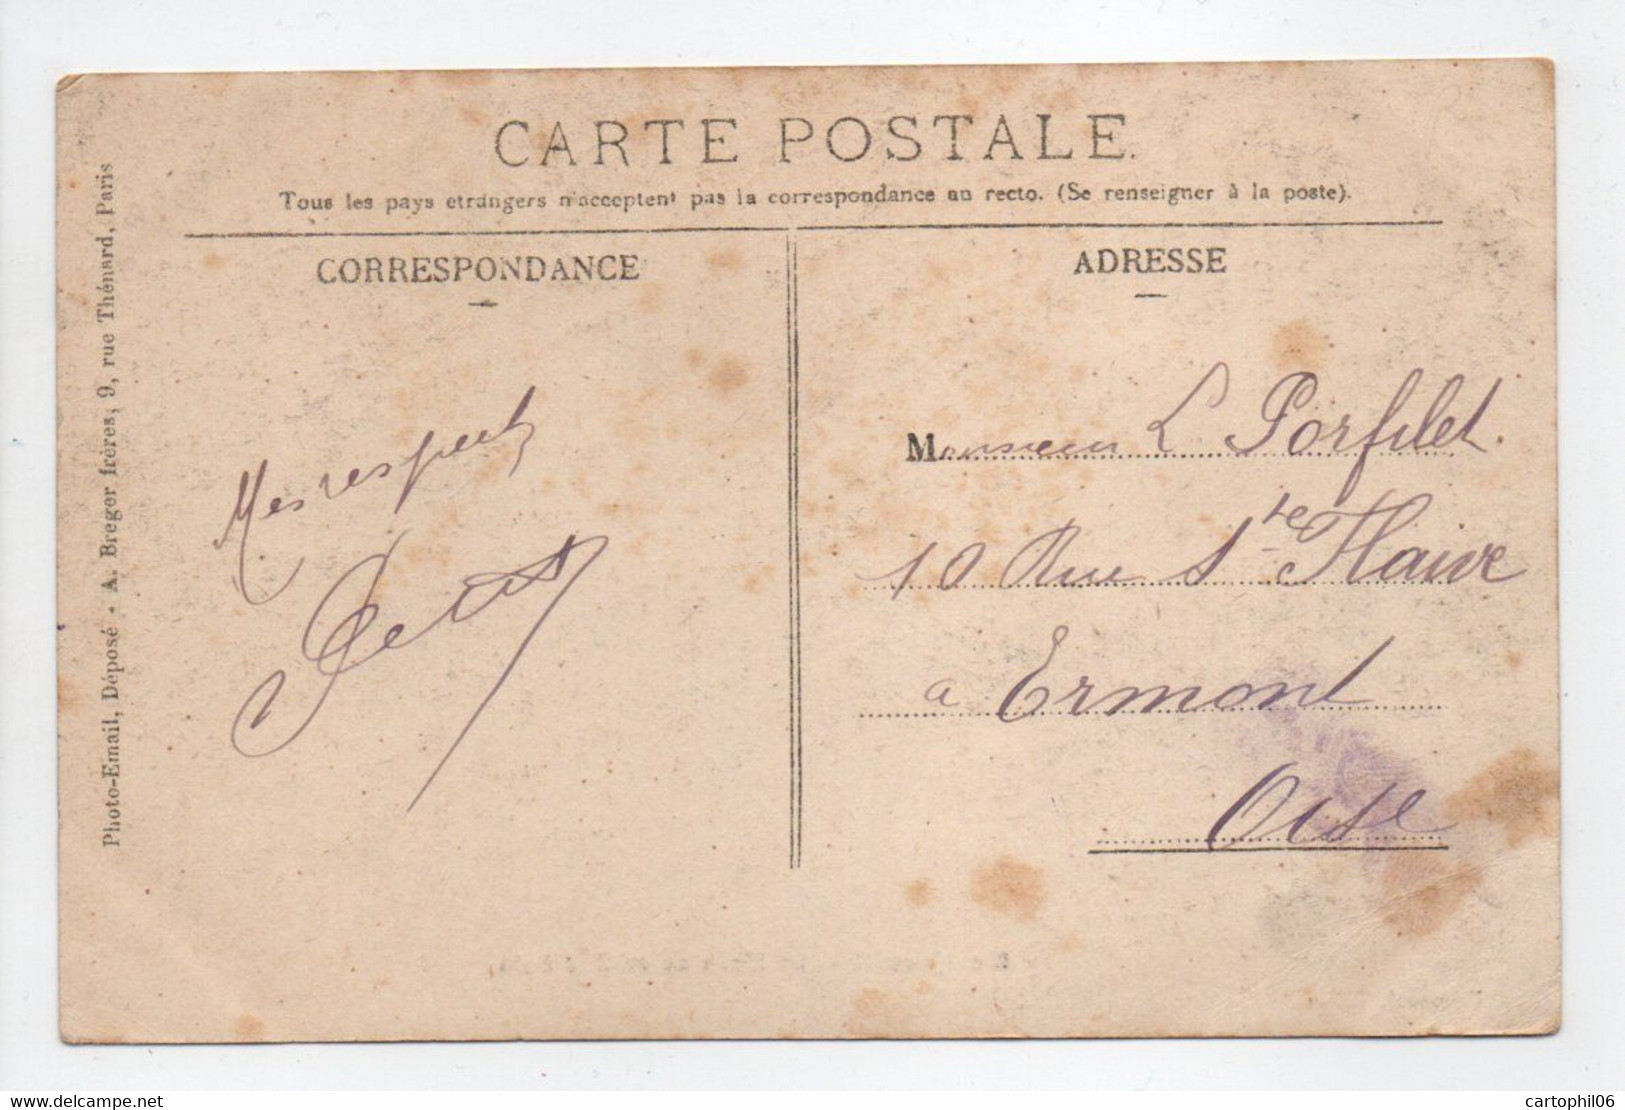 CARTE POSTALE.
Tous les pays etrangers n'acceptent pas la correspondance au recto. (Se renseigner à la poste).
CORRESPONDANCE
Mes respects
ADRESSE
Monsieur L. Porfilet.
10 Rue Ste Flaive
a Ermont
Oise
Photo-Email, Déposé - A. Breger frères, 9, rue Thénard, Paris
www.delcampe.net
cartophil06